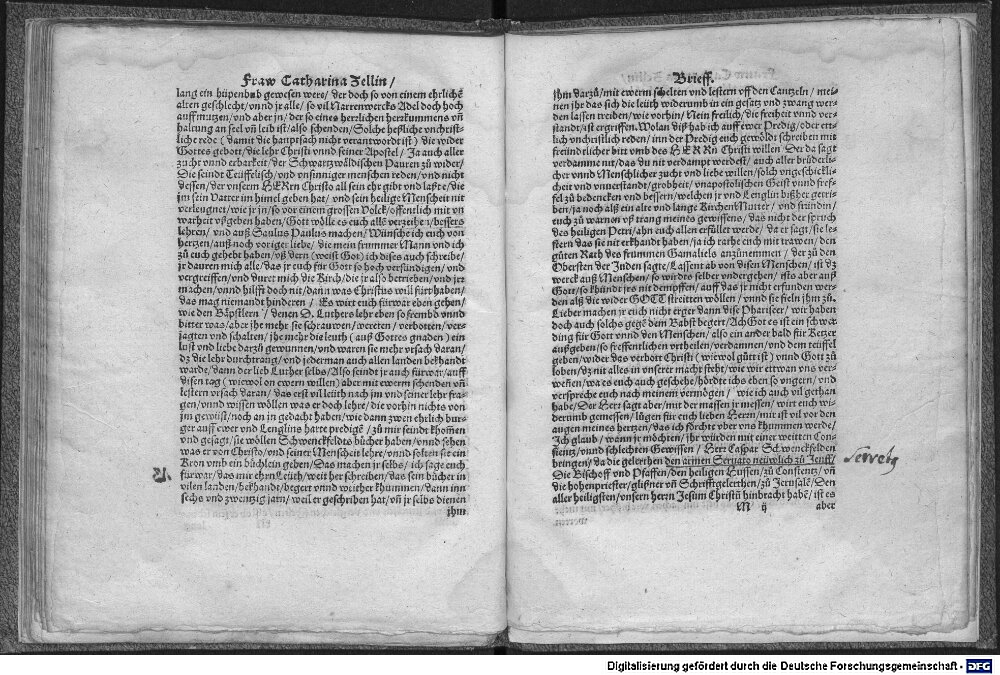 Fraw Catharina Zellin/
lang ein hüpenbůb gewesen were/ der doch so von einem ehrlichē
alten geschlecht/ vnnd jr alle/ so vil Narrenwercks Adel doch hoch
auffmutzen/ vnd aber jn/ der so eines herrlichen herrkummens vñ
haltung an seel vñ leib ist/ also schenden/ Solche heßliche vnchrist-
liche rede (damit die hauptsach nicht verantwordt ist) die wider
Gottes gebott/ die lehr Christi vnnd seiner Apostel/ Ja auch aller
zucht vnnd erbarkeit/ der Schwartzwäldischen Pauren zů wider/
Die seindt Teüffelisch/ vnd vnsinniger menschen reden/ vnd nicht
dessen/ der vnserm HERRn Christo all sein ehr gibt vnd laßte/ die
jm sein Vatter im himel geben hat/ vnd sein heilige Menscheit nit
verleugnet/ wie jr jn/ so vor einem grossen Volck/ offentlich mit vn
warheit vßgeben haben/ Gott wölle es euch alls verzeihē/ bessers
lehren/ vnd auß Saulus Paulus machen/ Wünsche ich euch von
hertzen/ auß noch voriger liebe/ die mein frummer Mann vnd ich
zů euch gehebt haben/ vß dern (weist Got) ich dises auch schreibe/
jr dauren mich alle/ das jr euch für Gott so hoch versündigen/ vnd
vergreiffen/ vnd durch mich die Kirch/ die jr also betrieben/ vnd jrr
machen/ vnnd hilfft doch nit/ dann was Christus will fürt haben/
das mag niemandt hinderen / Es wirt euch fürwar eben gehen/
wie den Bäpstlern / denen D. Luthers lehr eben so frembd vnnd
bitter was/ aber jhe mehr sie schrauwen/ wereten / verbotten/ ver-
jagten vnd schalten/ jhe mehr die leuth (auß Gottes gnaden) ein
lust vnd liebe darzů gewunnen/ vnd waren sie mehr vrsach daran/
dz die lehr durchtrang/ vnd jederman auch allen landen bekhandt
warde/ dann der lieb Luther selbs/ Also seindt jr auch fürwar/ auff
disen tag (wiewol on ewern willen) aber mit ewerm schenden vñ
lestern vrsach daran/ das erst vil leüth nach jm vnd seiner lehr fra-
gen/ vnnd wissen wöllen was er doch lehre/ die vorhin nichts von
jm gewüst/ noch an jn gedacht haben/ wie dann zwen ehrlich bur-
ger auff ewer vnd Lenglins harte predigē/ zů mir seindt khoṁen
vnd gesagt/ sie wöllen Schwenckfeldts bücher haben/ vnnd sehen
was er von Christo/ vnd seiner Menscheit lehre/ vnnd solten sie ein
Kron vmb ein büchlein geben/ Das machen jr selbs/ ich sage euch
fürwar/ das mir ehrn Leuth/ weit her schreiben/ das sein bücher in
vilen landen/ bekhandt/ begert vnnd weither khummen/ dann inn
sechs vnd zwentzig jarn/ weil er geschriben hat/ vñ jr selbs dienen
jhm
Brieff.
jhm darzů/ mit ewerm schelten vnd lestern vff den Cantzeln/ mei-
nen jhr das sich die leüth widerumb in ein gesatz vnd zwang wer-
den lassen treiben/ wie vorhin/ Nein freilich/ die freiheit vnnd ver-
standt/ ist ergriffen. Wolan diß hab ich auff ewer Predig/ oder ett-
lich vnchristlich reden/ inn der Predig euch gewöldt schreiben mit
freündlicher bitt vmb des HERRn Christi willen/ Der da sagt
verdamme nit/ das du nit verdampt werdest/ auch aller brüderli-
cher vnnd Menschlicher zucht vnd liebe willen/ solch vngeschickli-
cheit vnd vnuerstandt/ grobheit/ vnapostolischen Geist vnnd fref-
fel zů bedencken vnd bessern/ welchen jr vnd Lenglin bißher getri-
ben/ ja noch alß ein alte vnd lange Kirchen Mutter/ vnd fründin/
euch zů warnen vß trang meines gewissens/ das nicht der spruch
des heiligen Petri/ ahn euch allen erfüllet werde/ da er sagt/ sie le-
stern das sie nit erkhandt haben/ ja ich rathe euch mit trawen/ den
gůten Rath des frummen Gamaliels anzůnemmen/ der zů den
Obersten der Juden sagte/ Lassent ab von disen Menschen/ ist dz
werck auß Menschen/ so würdts selber undergehen/ ists aber auß
Gott/ so khündt jrs nit dempffen/ auff das jr nicht erfunden wer-
den alß die wider GOTT streitten wöllen / vnnd sie fieln jhm zů.
Lieber machen jr euch nicht erger dann dise Phariseer/ wir haben
doch auch solchs gegē dem Babst begert/ Ach Got es ist ein schwe
ding für Gott vnnd den Menschen/ also ein ander bald für Ketzer
außgeben/ so freffentlichen vrtheilen/ verdammen/ vnd dem teüffel
geben/ wider das verbott Christi (wiewol gůtt ist) vnnd Gott zů
loben/ vz nit alles in vnserer macht steht/ wie wir ettwan vns ver-
weßen/ wa es euch auch geschehe/ hördte ichs eben so vngern/ vnd
verspreche euch nach meinem vermögen / wie ich auch vil gethan
habe/ Der Herr sagt aber/ mit der massen jr messen/ wirt euch wi-
derumb gemessen/ lügen für euch lieben Herrn/ mir ist vil vor den
augen meines hertzen/ das ich förcht vber vns khummen werde/
Ich glaub/ wann jr möchten/ jhr würden mit einer weitten Con-
scientz/ vnnd schlechten Gewissen/ Herr Caspar Schwenckfelden
bringen/ da die gelerthen den armen Seruato neüwlich zů Jenff/
Die Bischoff vnd Pfaffen/ den heiligen Hussen/ zů Constentz/ vñ
die hohenpriester/ glißner vñ Schrifftgelerthen/ zů Jerusalē/ Den
aller heiligsten/ vnsern herrn Jesum Christū hinbracht habē/ ist es
M ij aber
Digitalisierung gefördert durch die Deutsche Forschungsgemeinschaft - DFG